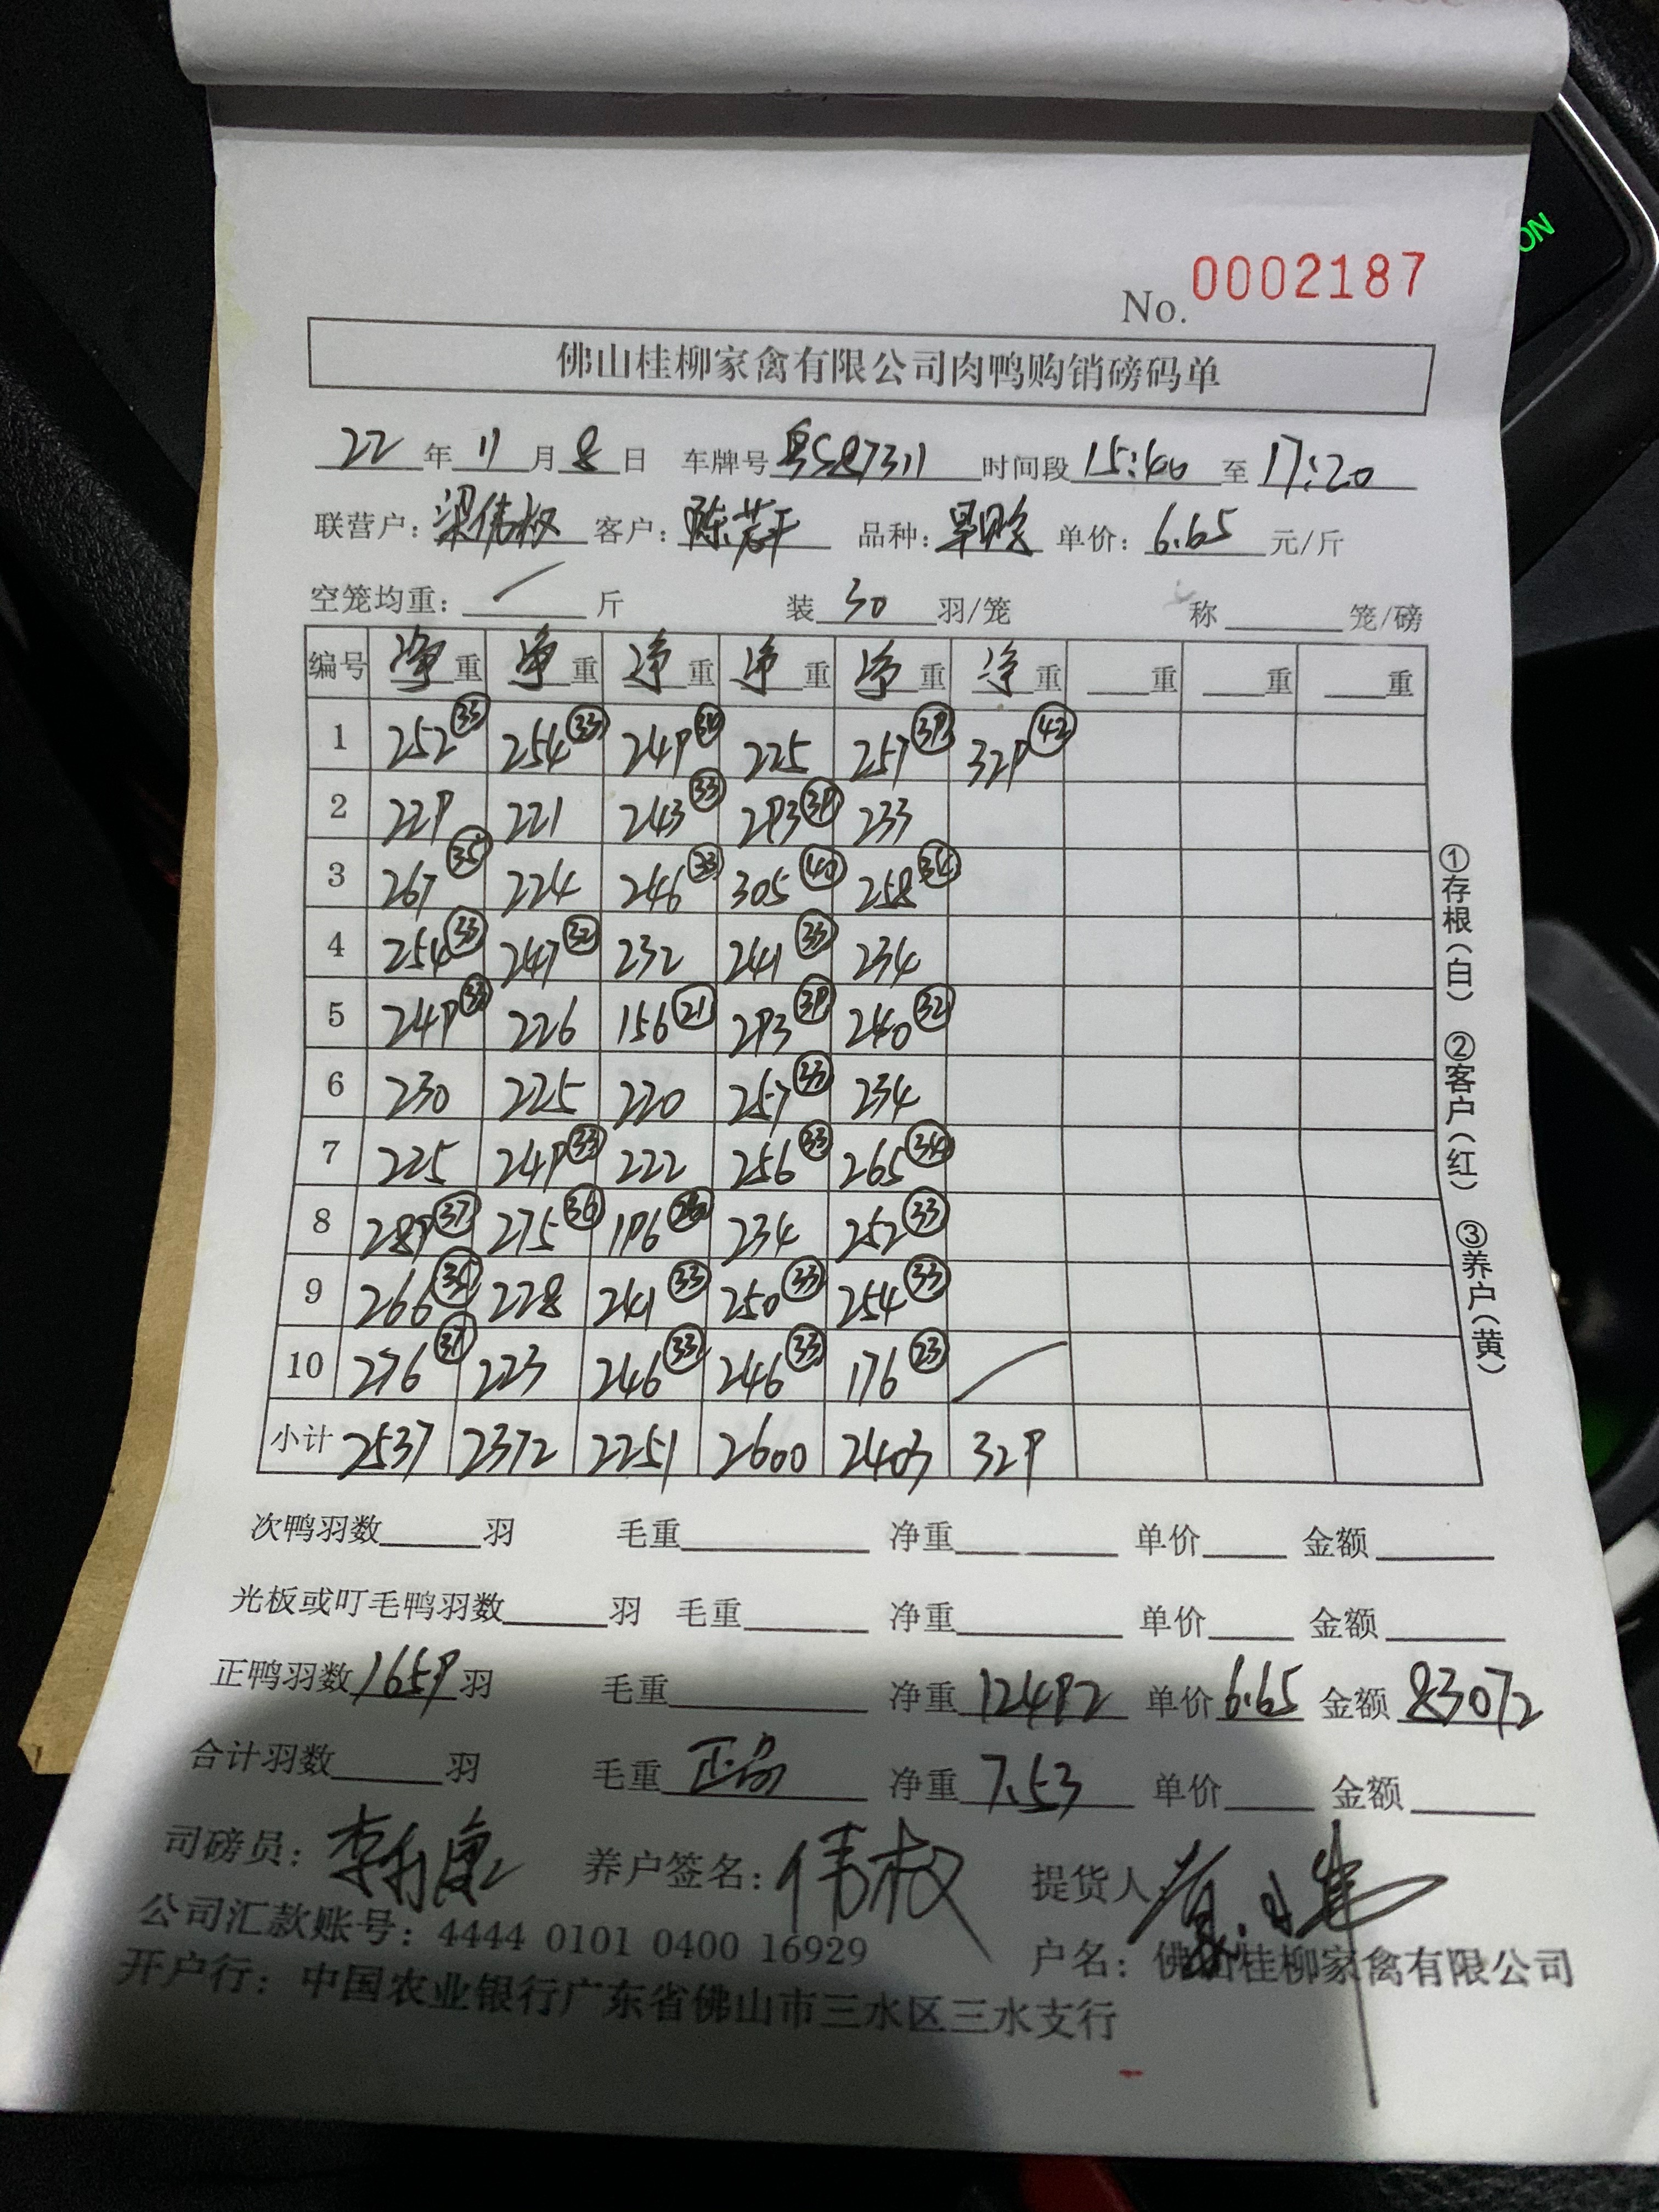 ON
No. 0002187
佛山桂柳家禽有限公司肉鸭购销磅码单
22 年 11 月 8 日 车牌号 粤SQ7311 时间段 15:40 至 17:20
联营户: 梁伟权 客户: 陈 品种: 单价: 6.65 元/斤
空笼均重: 斤 装 30 羽/笼 称 笼/磅
编号 净重 净重 净重 净重 净重 净重 重 重 重
1 252 ㉝ 254 ㉝ 249 225 257 ㊴ 329 ㊷
2 229 221 243 ㉝ 293 ㊴ 233
3 267 ㉟ 224 246 ㉝ 305 ㊵ 258 ㉞
4 254 ㉝ 247 ㉜ 232 241 ㉝ 234
5 249 226 156 ㉑ 293 ㊴ 240 ㉜
6 230 225 220 257 ㉝ 234
7 225 249 ㉝ 222 256 ㉝ 265 ㉞
8 289 ㊲ 275 ㊱ 196 234 252 ㉝
9 266 228 241 ㉝ 250 ㉝ 254 ㉝
10 276 ㊲ 223 246 ㉝ 246 ㉝ 176 ㉓
小计 2537 2372 2251 2600 2403 329
①存根(白) ②客户(红) ③养户(黄)
次鸭羽数 羽 毛重 净重 单价 金额
光板或叮毛鸭羽数 羽 毛重 净重 单价 金额
正鸭羽数 1659 羽 毛重 净重 12492 单价 6.65 金额 83072
合计羽数 羽 毛重 净重 7.53 单价 金额
司磅员: 李 养户签名: 伟权 提货人
公司汇款账号: 4444 0101 0400 16929 户名: 佛山桂柳家禽有限公司
开户行: 中国农业银行广东省佛山市三水区三水支行